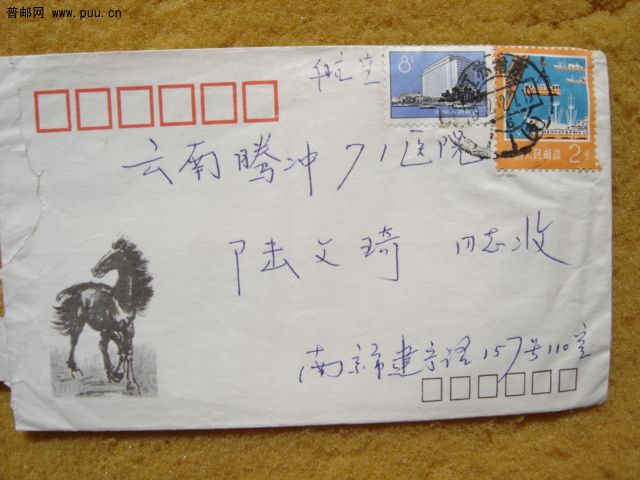 普邮网 www.puu.cn
航空
8分
人民邮政 2分
云南腾冲71医院
陆文琦 同志收
南京市建宁路157号110室